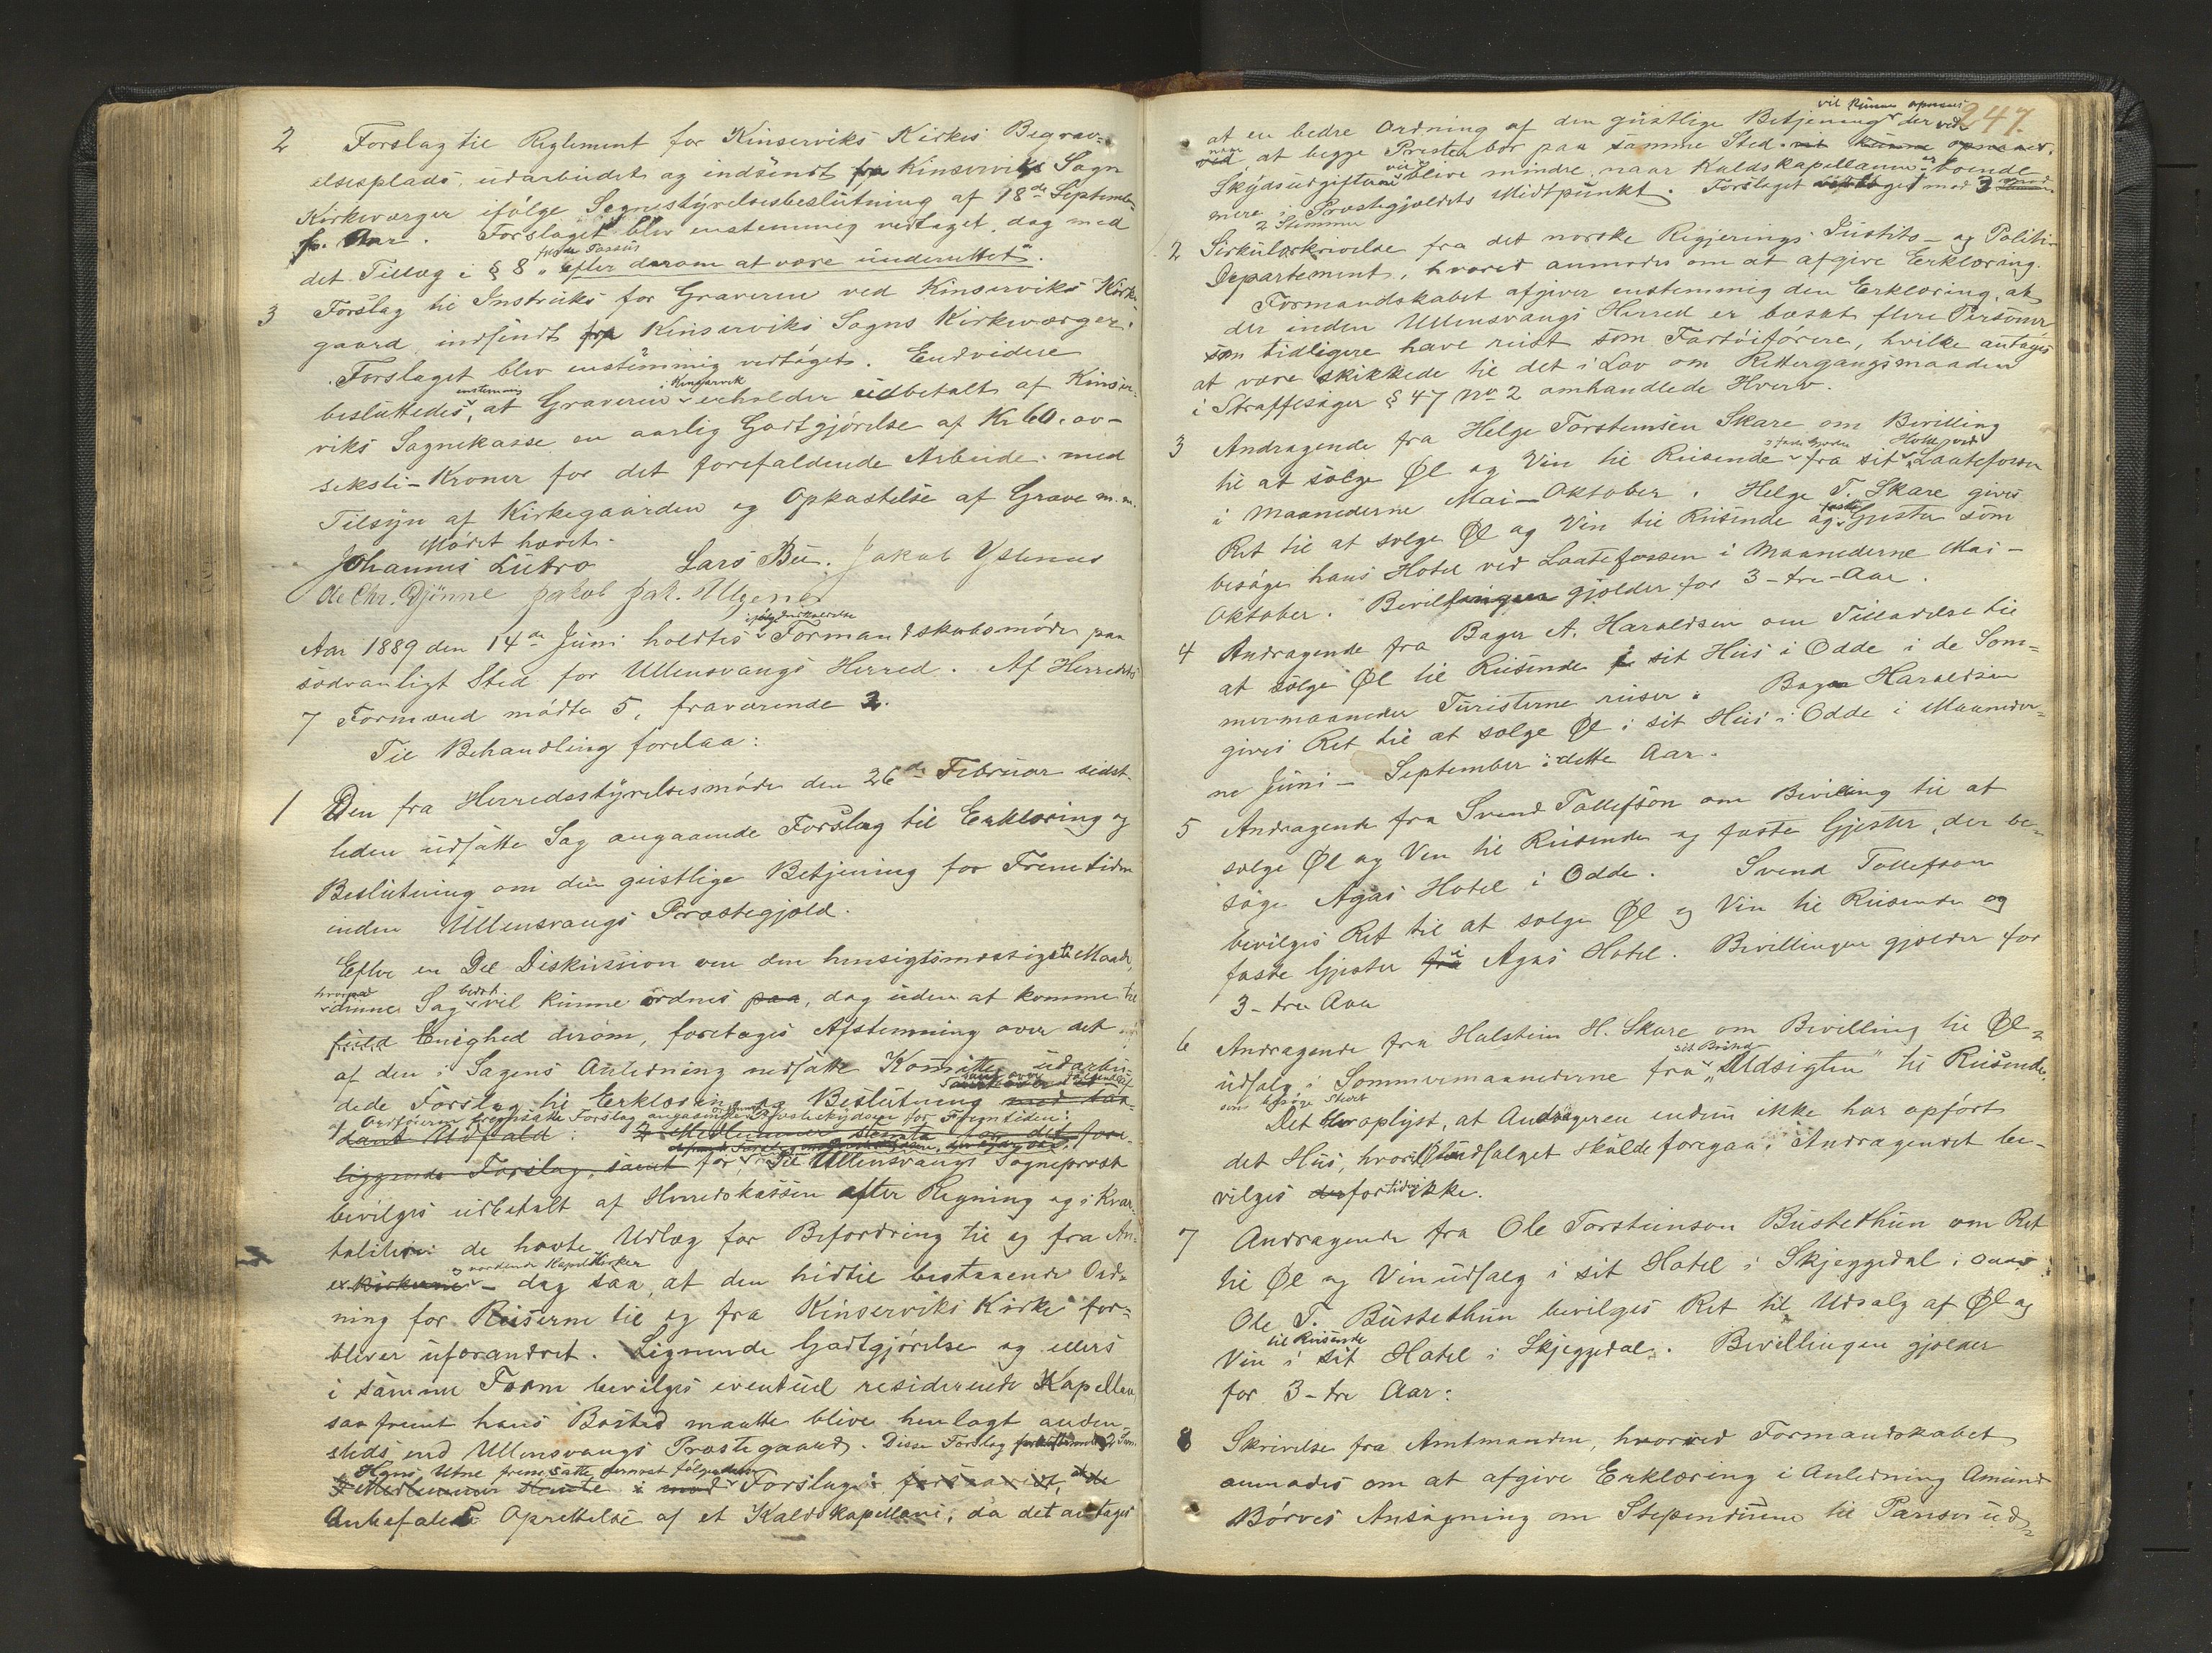 2 Forslag til Reglement for Kinserviks Kirkes Begrav-
elsesplads, udarbeidet og indsendt fra Kinserviks Sogns
Kirkeværger ifølge Sognestyrelsesbeslutning af 18de Septembr
f. Aar. Forslaget blev enstemmig vedtaget, dog med
det Tillæg i § 8 „efter derom at være underrettet".
3 Forslag til Instruks for Graveren ved Kinserviks Kirke-
gaard indsendt fra Kinserviks Sogns Kirkeværger.
Forslaget blev enstemmig vedtaget. Endvidere
enstemmig i Kinservik
besluttedes, at Graveren erholder udbetalt af Kinser-
viks Sognekasse en aarlig Godtgjørelse af Kr 60.00 -
seksti-Kroner for det forefaldende Arbeide med
Tilsyn af Kirkegaarden og Opkastelse af Grave m.m.
Mødet hævet.
Johannes Lutro Lars Bu. Jakob Ystenes
Ole Chr. Djønne Jakob Jak.
Aar 1889 den 14de Juni holdtes Formandskabsmøde paa
sædvanligt Sted for Ullensvangs Herred. Af Herredets
7 Formænd mødte 5, fraværende 2.
Til Behandling forelaa:
1 Den fra Herredsstyrelsesmøde den 26de Februar sidst-
leden udsatte Sag angaaende Forslag til Erklæring og
Beslutning om den geistlige Betjening for Fremtiden
inden Ullensvangs Præstegjæld.
Efter en Del Diskussion om den hensigtsmæssigste Maade,
hvorpaa bedst
denne Sag vil kunne ordnes paa, dog uden at komme til
fuld Enighed derom, foretages Afstemning over det
af den i Sagens Anledning nedsatte Komite udarbei-
dede Forslag til Erklæring og Beslutning
af Ordføreren fremsatte Forslag angaaende Præsteskydsen for Fremtiden:
dant Udfald: 2 Medlemmer stemte for det fore-
liggende Forslag, samt for Til Ullensvangs Sognepræst
bevilges udbetalt af Herredskassen efter Regning og i Kvar-
taliter de havte Udlæg for Befordring til og fra An-
vordende Kapelkirker
exkirkerne - dog saa, at den hidtil bestaaende Ord-
ning for Reiserne til og fra Kinserviks Kirke for-
bliver uforandret. Lignende Godtgjørelse og ellers
i samme Form bevilges eventuel residerende Kapellan,
saafremt hans Bosted maatte blive henlagt anden-
steds end Ullensvangs Præstegaard. Disse Forslag
Hans Utne fremsatte dernæst følgende
2 Medlemmer stemte med Forslag:
Anbefaler Oprettelse af et Kaldskapellani, da det antages
247.
vil kunne opnaaes
at en bedre Ordning af den geistlige Betjening der ved
naar
ved at begge Prester bor paa samme Sted vil kunne opnaaes.
Skydsudgifterne vil blive mindre, naar Kaldskapellanen er boende
mere i Præstegjældets Midtpunkt. Forslaget mod 3
2 Stemmer
2 Sirkulærskrivelse fra det norske Regjerings Justits- og Politi-
Departement, hvorved anmodes om at afgive Erklæring.
Formandskabet afgiver enstemmig den Erklæring, at
der inden Ullensvangs Herred er bosat flere Personer
som tidligere have reist som Fartøiførere, hvilke antages
at være skikkede til det i Lov om Rettergangsmaaden
i Straffesager § 47 No 2 omhandlede Hverv.
3 Andragende fra Helge Torsteinsen Skare om Bevilling
til at sælge Øl og Vin til Reisende fra sit Hotel ved Laatefossen
i Maanederne Mai-Oktober. Helge T. Skare gives
Ret til at sælge Øl og Vin til Reisende og faste Gjester som
besøge hans Hotel ved Laatefossen i Maanederne Mai-
Oktober. Bevillingen gjælder for 3-tre-Aar.
4 Andragende fra Bager A. Haraldsen om Tilladelse til
at sælge Øl til Reisende i sit Hus i Odde i de Som-
mermaaneder Turisterne reiser. Bager Haraldsen
gives Ret til at sælge Øl i sit Hus i Odde i Maaneder-
ne Juni- September i dette Aar.
5 Andragende fra Svend Tollefson om Bevilling til at
sælge Øl og Vin til Reisende og faste Gjester, der be-
søge Agas Hotel i Odde. Svend Tollefson
bevilges Ret til at sælge Øl og Vin til Reisende og
faste Gjester i fra Agas Hotel. Bevillingen gjælder for
3-tre Aar
6 Andragende fra Halstein H. Skare om Bevilling til Øl-
udsalg i Sommermaanederne fra „Udsigten" til Reisende,
som besøge Stedet
Det blev oplyst, at Andrageren endnu ikke har opført
det Hus, hvori Øludsalget skulde foregaa. Andragendet be-
vilges derfor ikke.
7 Andragende fra Ole Torsteinson Bustethun om Ret
til Øl og Vinudsalg i sit Hotel i Skjeggedal.
Ole T. Bustethun bevilges Ret til Udsalg af Øl og
til Reisende
Vin i sit Hotel i Skjeggedal. Bevillingen gjælder
for 3-tre Aar.
8 Skrivelse fra Amtmanden, hvorved Formandskabet
anmodes om at afgive Erklæring i Anledning Amund
Børves Ansøgning om Stipendium til